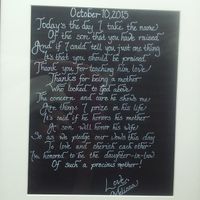 October 10, 2015
Today's the day I take the name
Of the son that you have raised
And if I could tell you just one thing
It's that you should be praised
Thank you for teaching him love
Thanks for being a mother
Who looked to God above
The concern and care he shows me
Are things I prize in his life
It's said if he honors his mother
A son will honor his wife
So as we pledge our vows this day
To love and cherish each other
I'm honored to be the daughter-in-law
Of such a precious mother!
Love,
Melissa